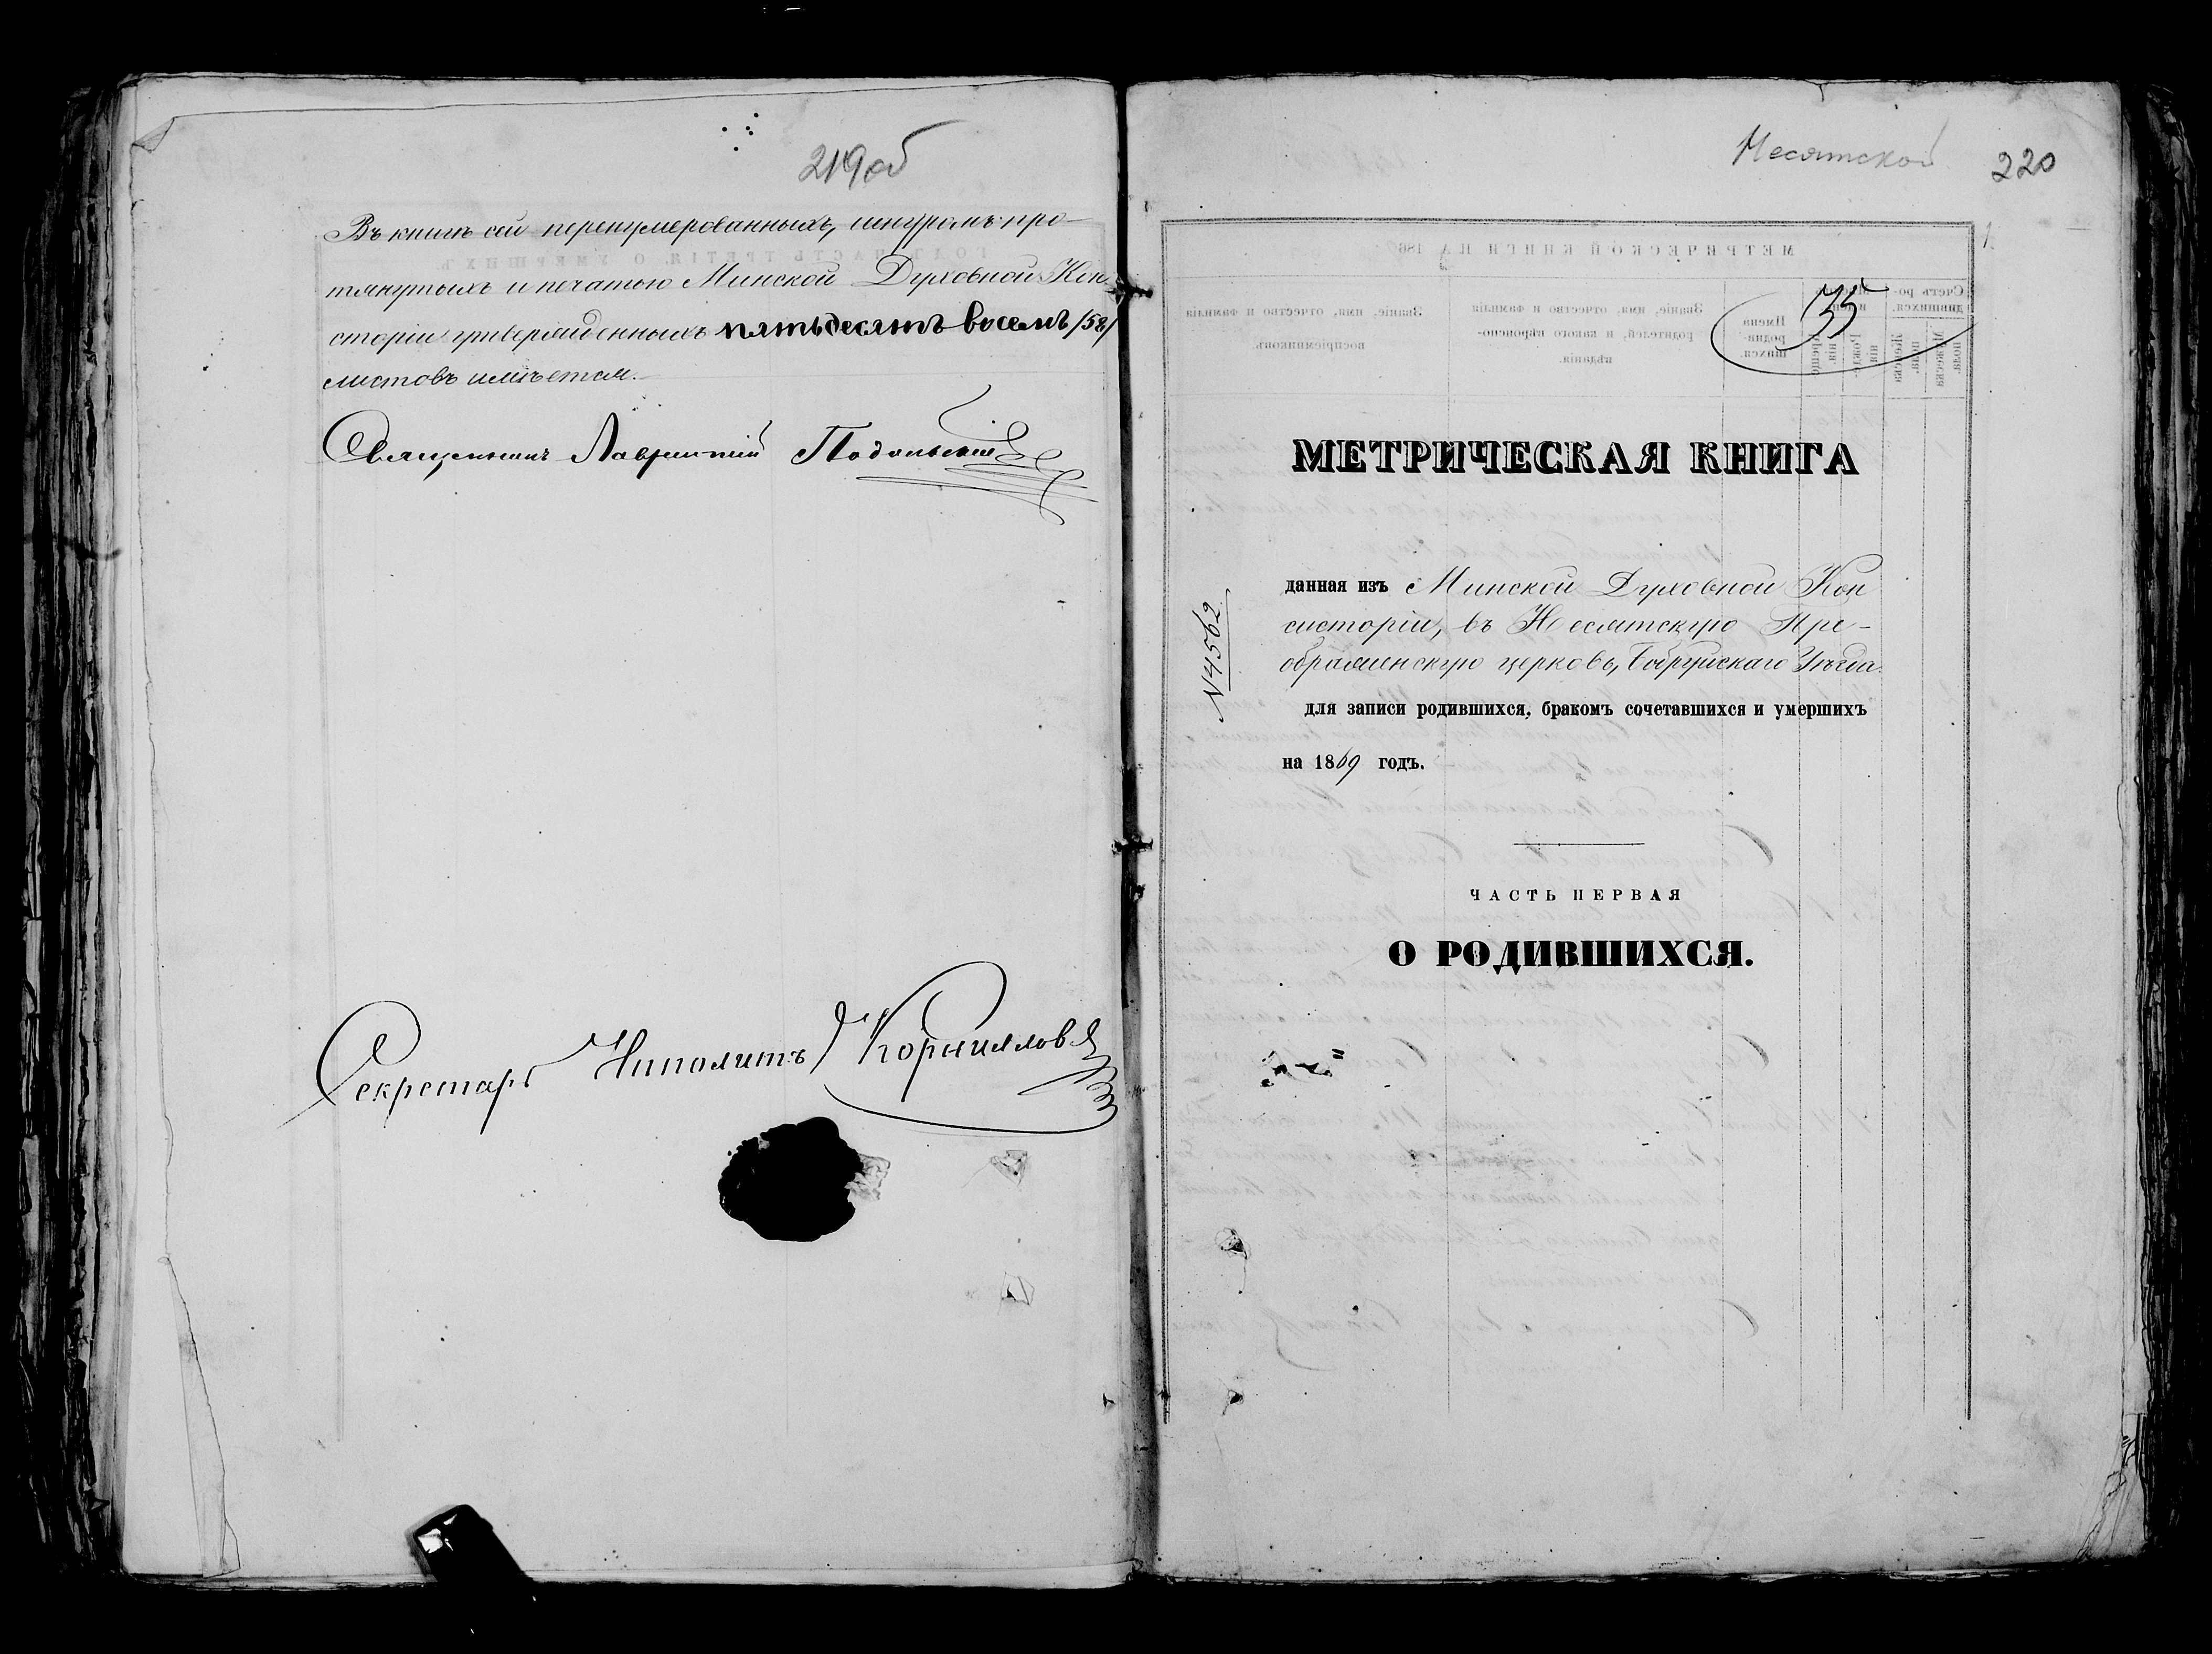 219 об
Въ книгѣ сей перенумерованныхъ, шнуромъ про-
тянутыхъ и печатью Минской Духовной Кон-
систоріи утвержденныхъ пятьдесятъ восемь /58/
листовъ имѣется.
Священникъ Лаврентій Подольскій
Секретарь Ипполитъ Корниловъ
Несятской 220
35
МЕТРИЧЕСКАЯ КНИГА
№ 4562
данная изъ Минской Духовной Кон
систоріи, въ Несятскую Пре-
ображенскую церковь, Бобруйскаго Уѣзда
для записи родившихся, бракомъ сочетавшихся и умершихъ
на 1869 годъ.
ЧАСТЬ ПЕРВАЯ
О РОДИВШИХСЯ.